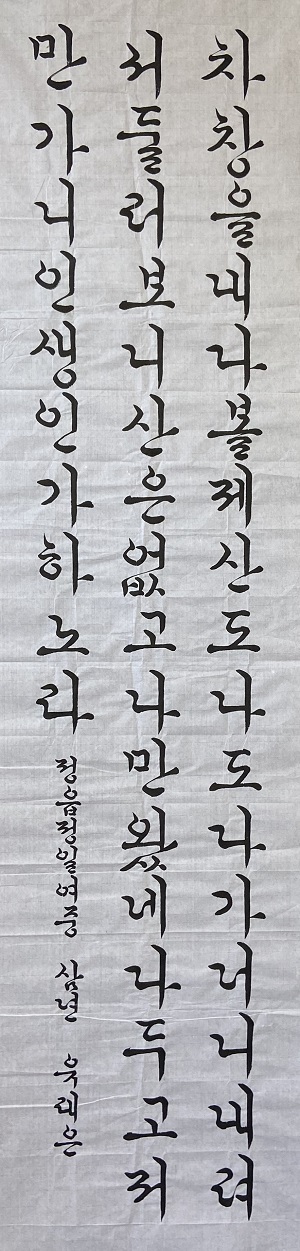 차창을내다볼제산도나도다가더니내려
서둘러보니산은없고나만왔네다두고저
만가니인생인가하노라
정읍정일여중 삼년